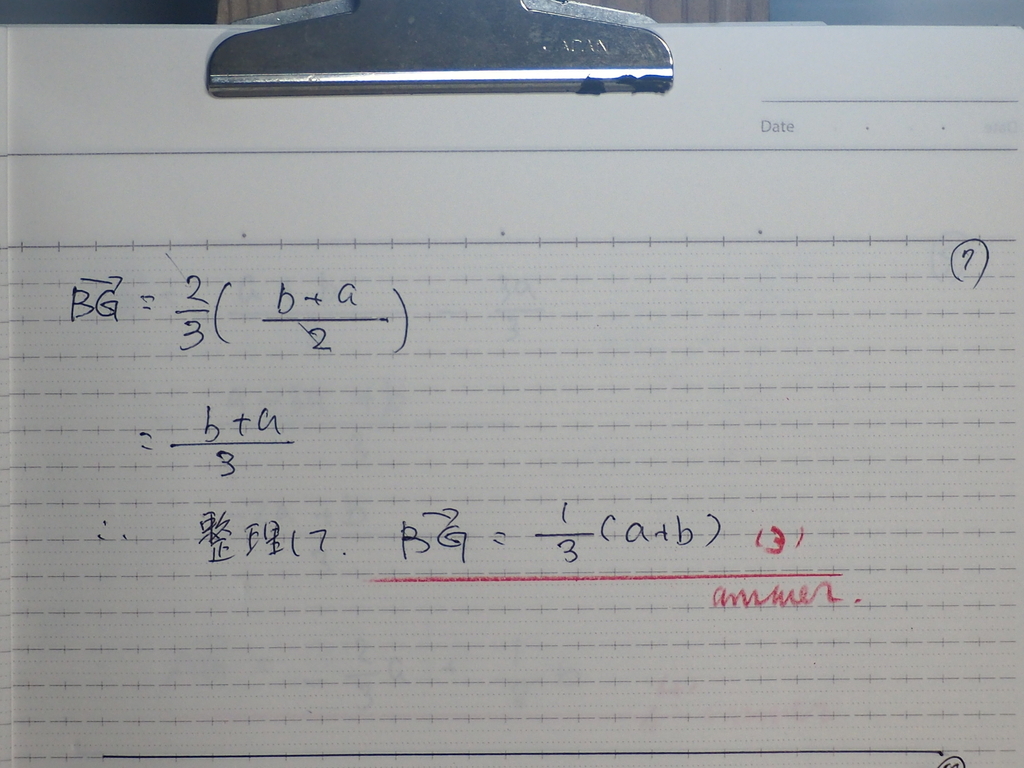 JAPAN
Date
⑦
BG→ = 2/3 ( b+a / 2 )
= b+a / 3
∴ 整理して. BG→ = 1/3 (a+b) (3)
answer.